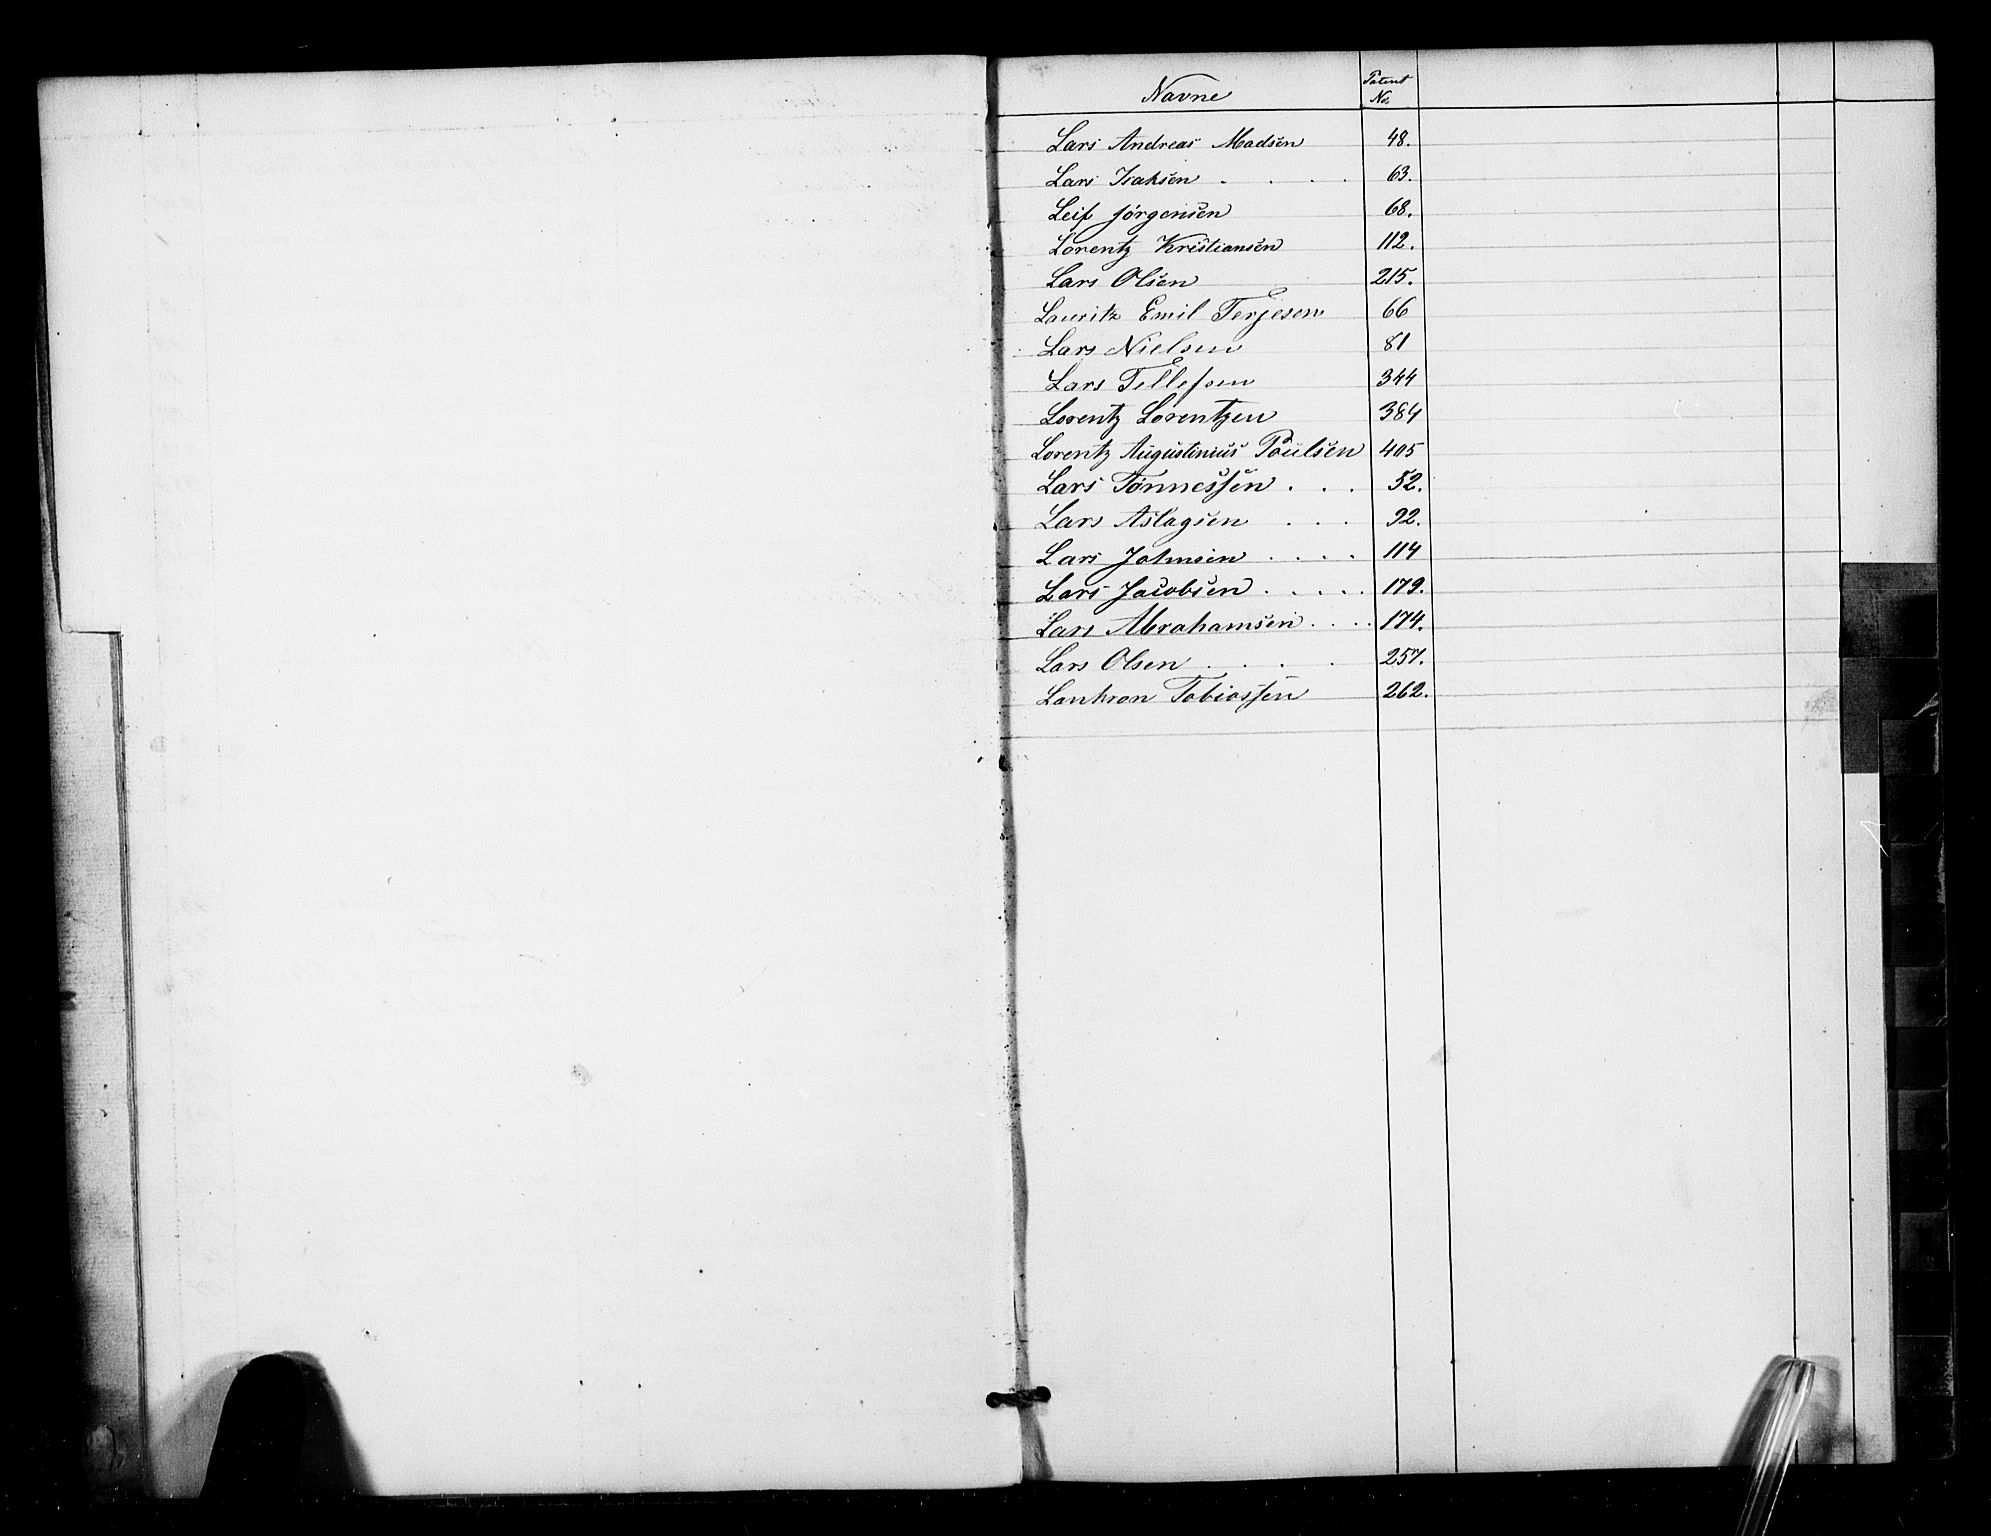 Navne Patent No.
Lars Andreas Madsen 48.
Lars Isaksen . . . . 63.
Leif Jörgensen 68.
Lorentz Kristiansen 112.
Lars Olsen 215.
Lauritz Emil Terjesen 66
Lars Nielsen 81
Lars Tellefsen 344
Lorentz Lorentzen 384
Lorentz Augustinius Poulsen 405
Lars Tønnessen . . . 52.
Lars Aslagsen . . . 92.
Lars Johnsen . . . . 114
Lars Jacobsen . . . . . 179.
Lars Abrahamsen . . . . 174.
Lars Olsen . . . . 257.
Tobiassen 262.